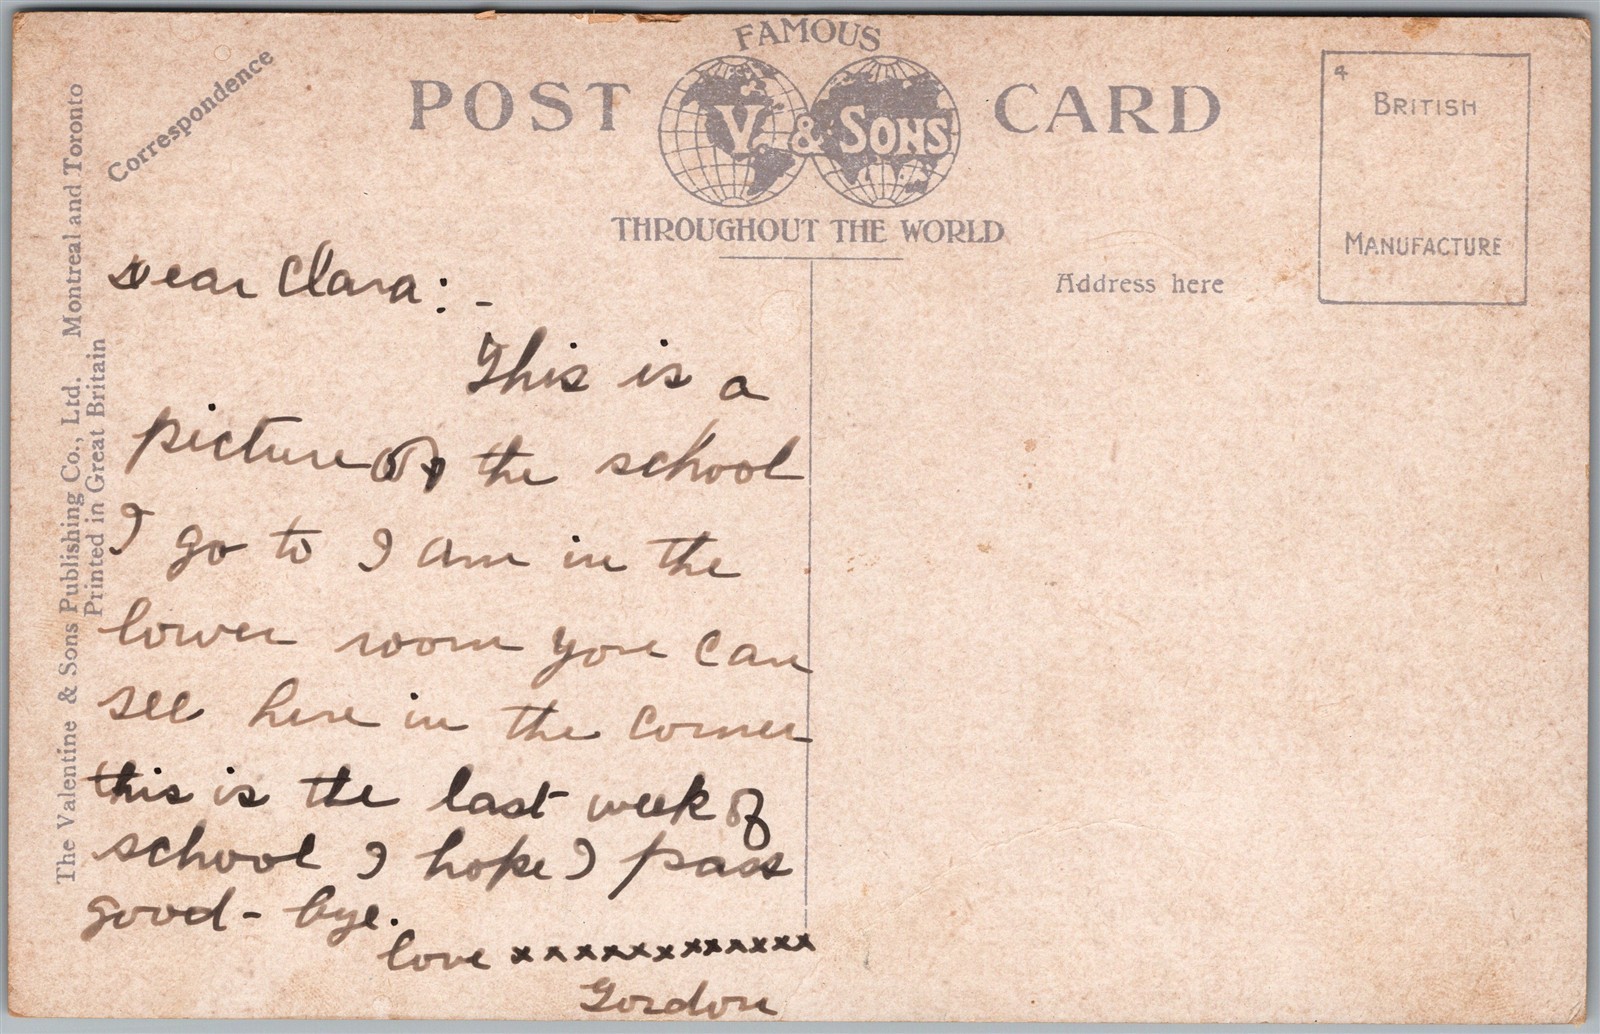 FAMOUS
POST CARD
V. & SONS
THROUGHOUT THE WORLD
Correspondence
Address here
4
BRITISH
MANUFACTURE
The Valentine & Sons Publishing Co., Ltd. Montreal and Toronto
Printed in Great Britain
Dear Clara: -
This is a
picture of the school
I go to I am in the
lower room you can
see here in the corner
this is the last week of
school I hope I pass
good-bye.
love xxxxxxxxxxxxx
Gordon